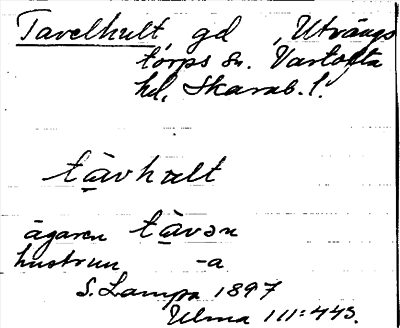 Tavelhult, gd, Utvängs
torps sn. Vartofta
hd, Skarab. l.
tàvhult
ägaren tàvən
hustrun -a
S. Lampa 1897
Ulma 111:443.